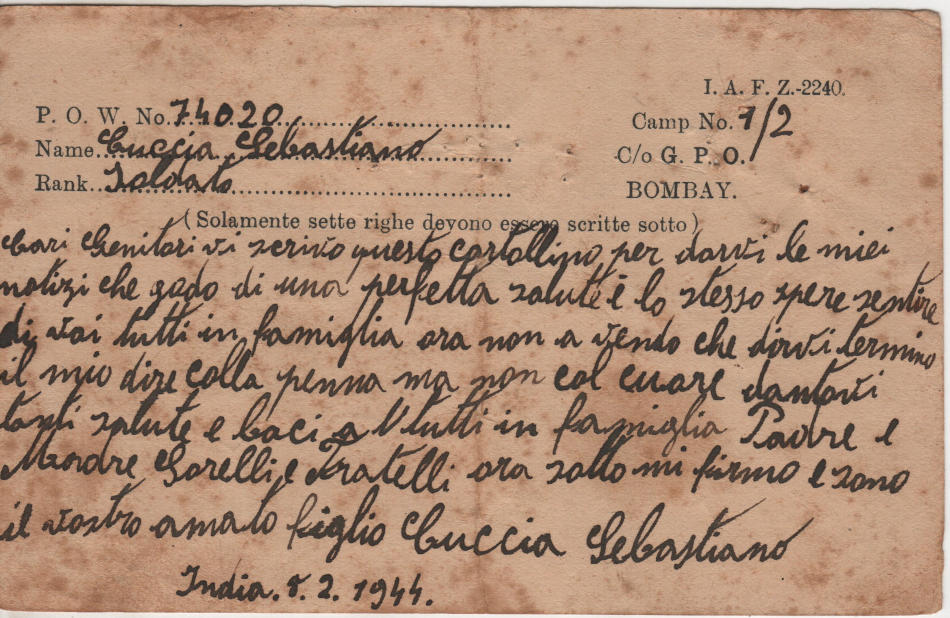 I. A. F. Z.-2240.
P. O. W. No. 74020
Camp No. 1/2
Name Cuccia Sebastiano
C/o G. P. O.
Rank Soldato
BOMBAY.
(Solamente sette righe devono essere scritte sotto)
Cari Genitori vi scrivo questo cartollino per darvi le miei
notizi che gado di una perfetta salute è lo stesso spere sentire
di voi tutti in famiglia ora non a vendo che dirvi termino
il mio dire colla penna ma non col cuare dantovi
tanti salute e baci a tutti in famiglia Padre e
Madre Sorelli e Fratelli ora sotto mi firmo e sono
il vostro amato figlio Cuccia Sebastiano
India. 8. 2. 1944.